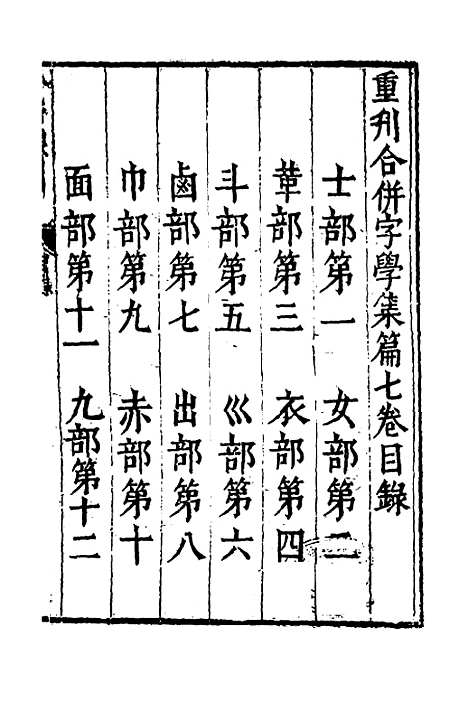 重刋合併字學集篇七卷目錄
士部第一　女部第二
革部第三　衣部第四
斗部第五　巛部第六
鹵部第七　出部第八
巾部第九　赤部第十
面部第十一　九部第十二